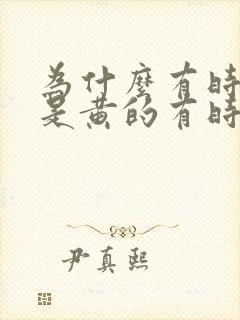 為什麼有時
是黃的有時
尹真熙